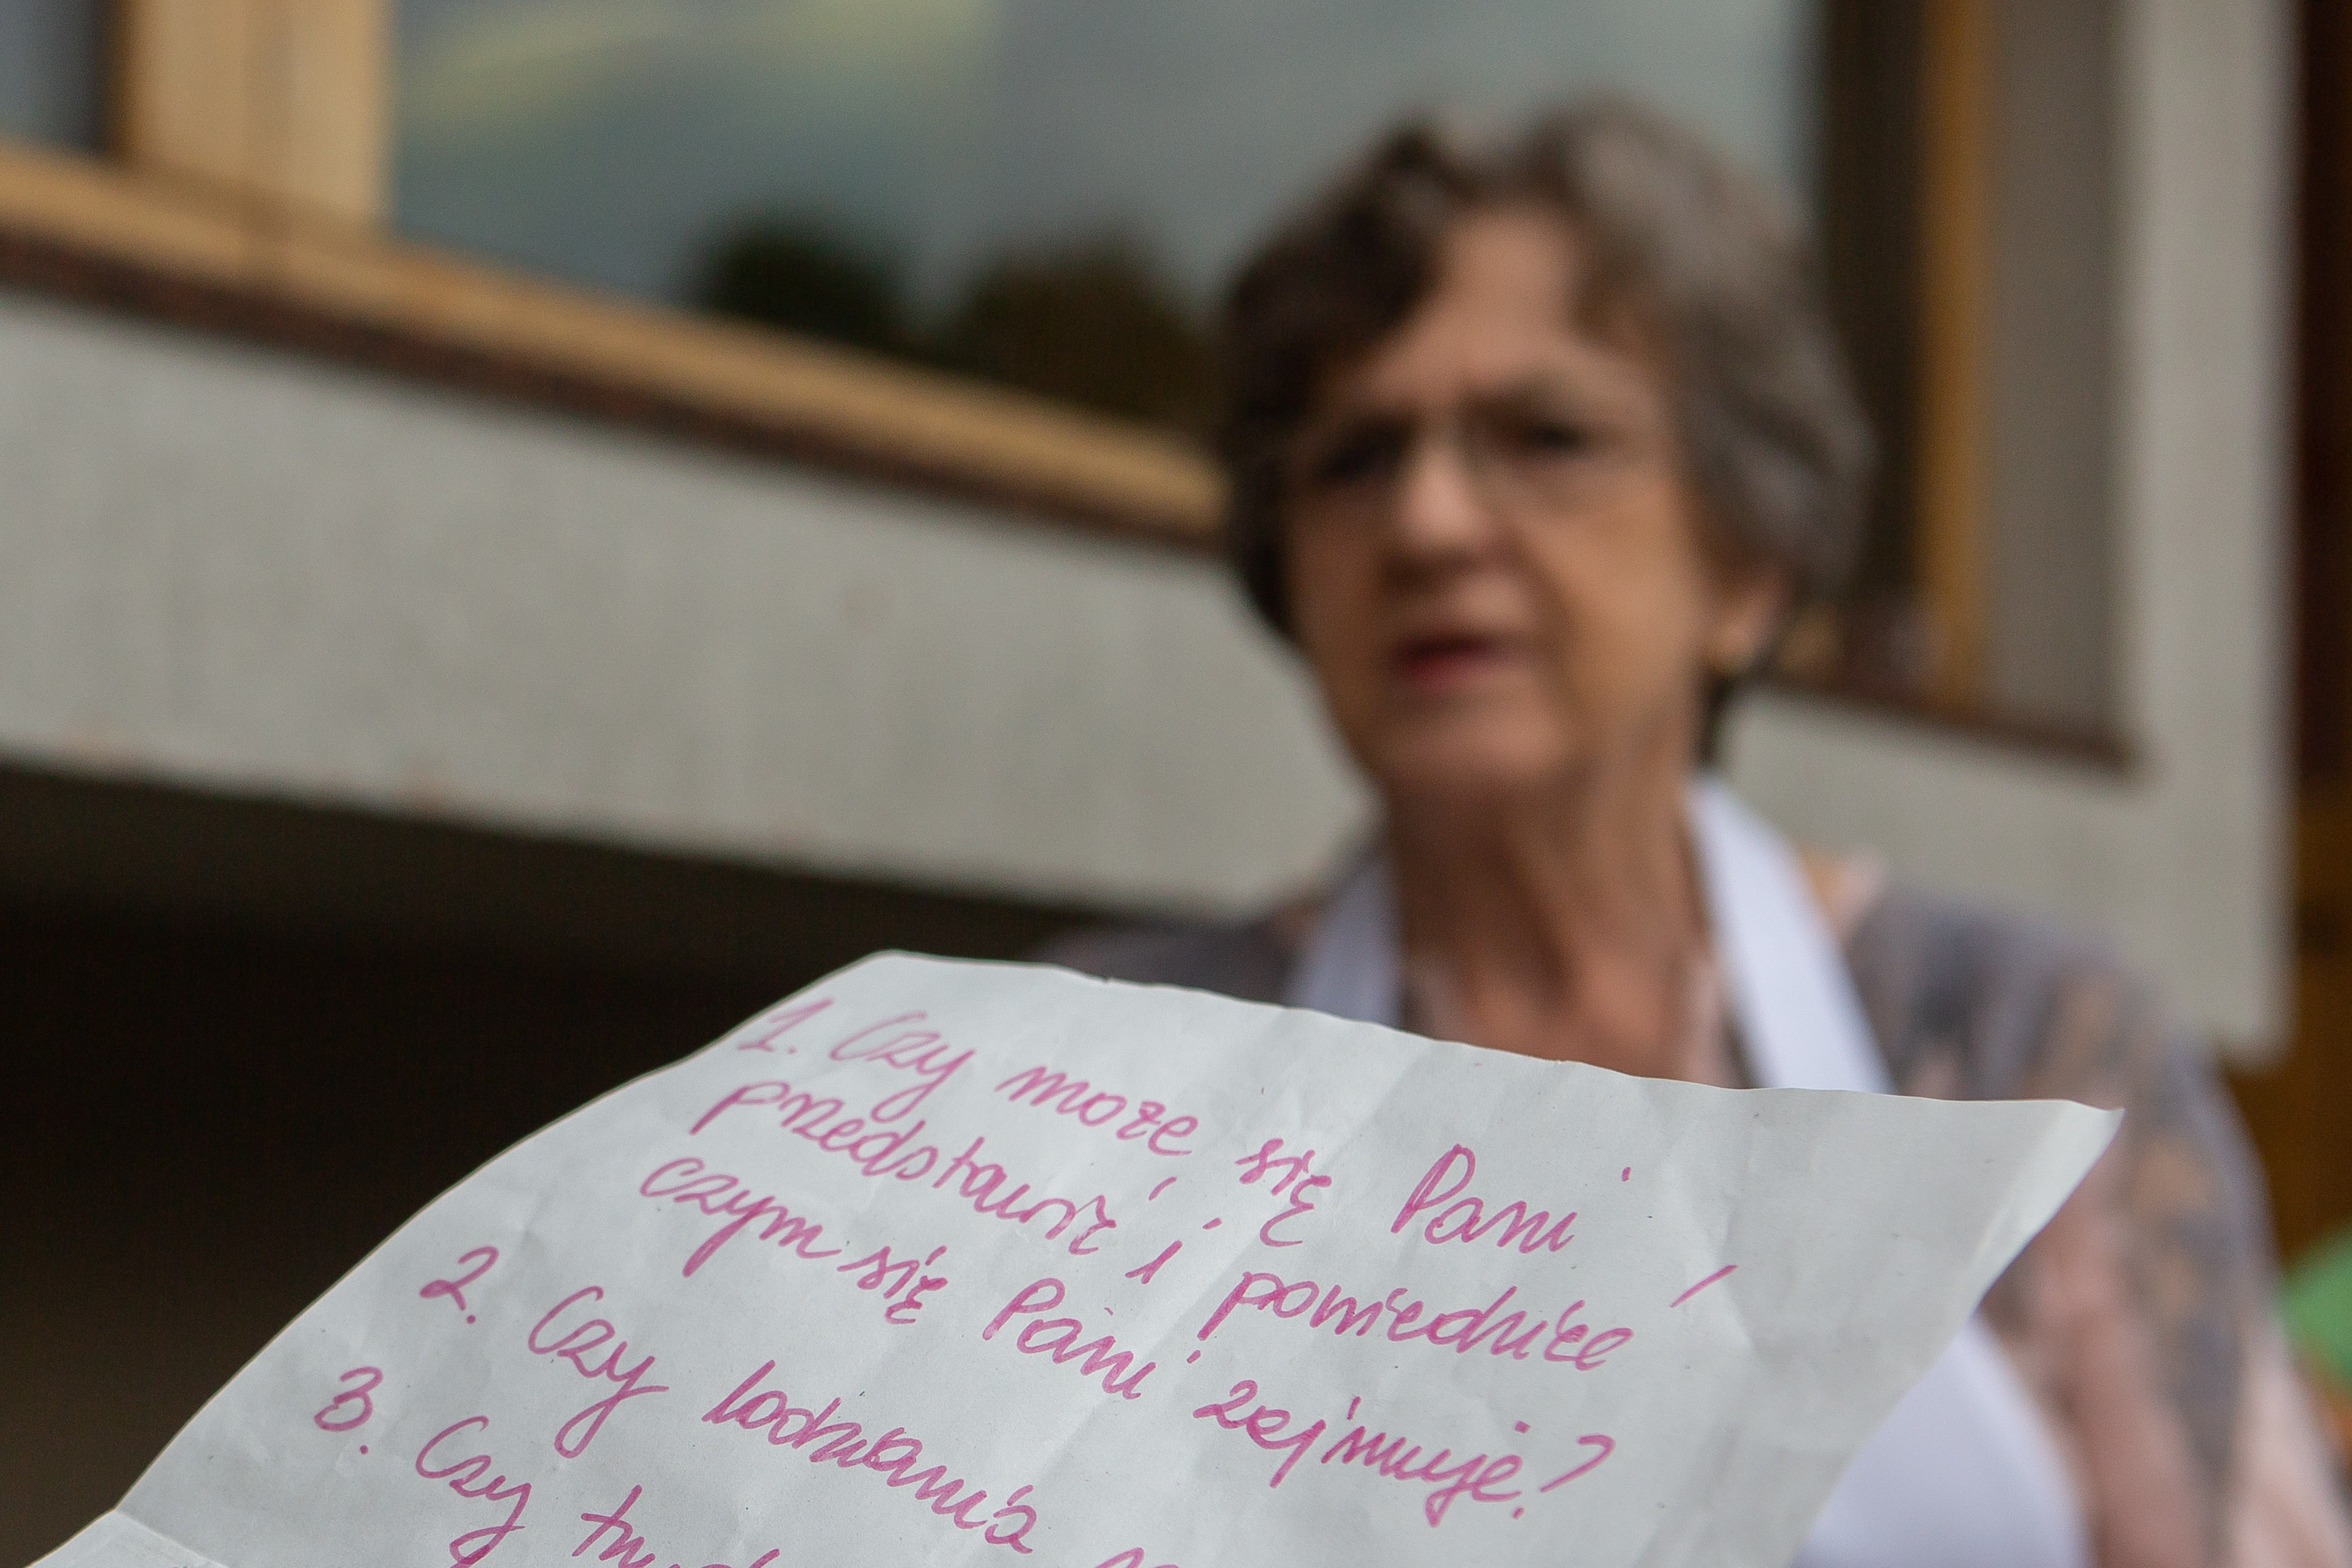 1. Czy może się Pani
przedstawić i powiedzieć
czym się Pani zajmuje?
2. Czy lodziania
3. Czy